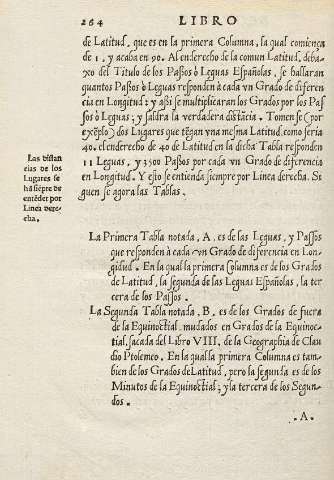 264 LIBRO
de Latitud, que es en la primera Columna, la qual comiença
de 1, y acaba en 90. Al enderecho de la comun Latitud, deba-
xo del Titulo de los Passos ò Leguas Españolas, se hallaran
quantos Passos ò Leguas responden à cada vn Grado de diferen-
cia en Longitud; y assi se multiplicaran los Grados por los Pas-
sos ò Leguas; y saldra la verdadera distãcia. Tomen se (por
exẽplo) dos Lugares que tẽgan vna mesma Latitud.como seria
40. el enderecho de 40 de Latitud en la dicha Tabla responden
11 Leguas, y 3500 Passos por cada vn Grado de diferencia
en Longitud. Y esto se entienda siempre por Linea derecha. Si-
guen se agora las Tablas.
Las distan
cias de los
Lugares se
hã siẽpre de
entẽder por
Linea dere-
cha.
La Primera Tabla notada, A. es de las Leguas, y Passos
que responden à cada vn Grado de diferencia en Lon-
gidud. En la qual la primera Columna es de los Grados
de Latitud, la segunda de las Leguas Españolas, la ter
cera de los Passos.
La Segunda Tabla notada, B. es de los Grados de fuera
de la Equinoctial, mudados en Grados de la Equinoc-
tial. sacada del Libro VIII. de la Geographia de Clau
dio Ptolemeo. En la qual la primera Columna es tam-
bien de los Grados de Latitud, pero la segunda es de los
Minutos de la Equinoctial; y la tercera de los Segun-
dos.
.A.